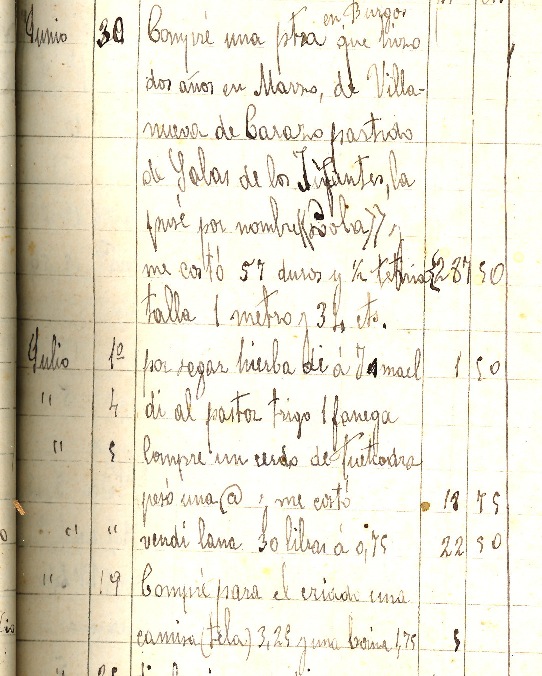 en Burgos
Junio 30 Compré una ptra que hizo
dos años en Marzo, de Villa-
nueva de Carazo partido
de Salas de los Ifantes, la
pusé por nombre ((Sola)) y
me costó 57 duros y ½ 287 50
talla 1 metro y 34 cts.
Julio 1º por segar hierba di á Ismael 1 50
" 4 di al pastor trigo 1 fanega
" 5 Compre un cerdo de
pesó una @ y me costó 18 75
" " vendi lana 30 libras á 0,75 22 50
" 19 Compré para el criado una
camisa (tela) 3,25 y una boina 1,75 5